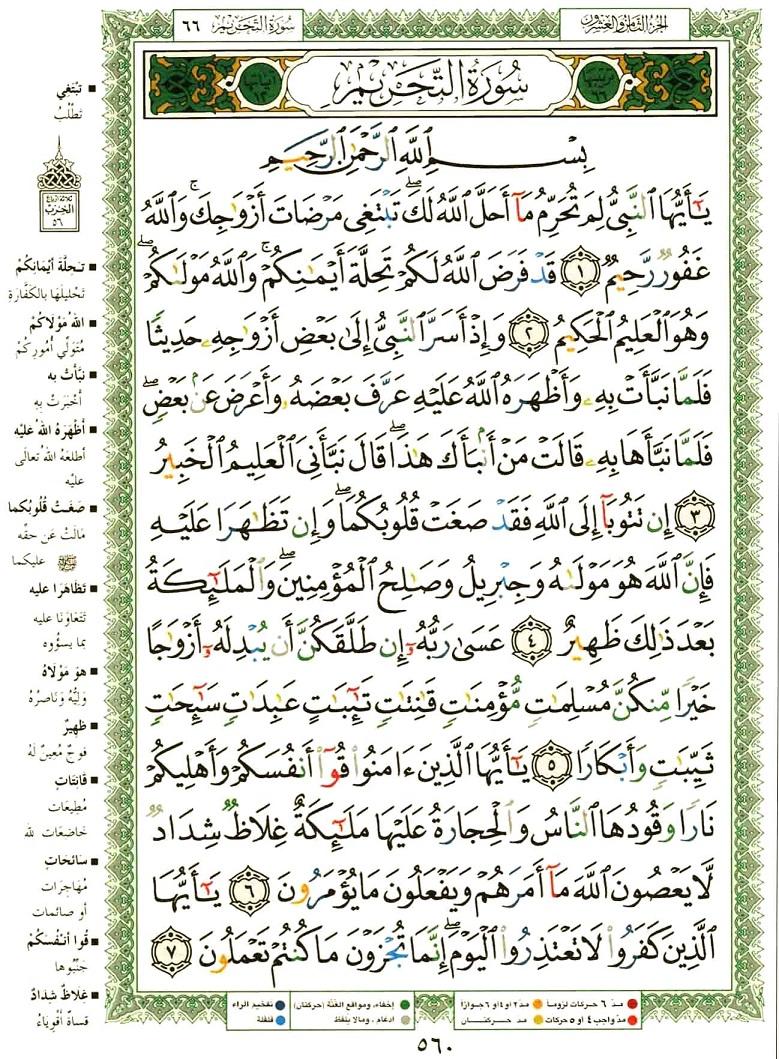 الجزء الثامن والعشرون
سورة التحريم ٦٦
سُورَةُ التَّحْرِيمِ
بِسْمِ ٱللَّهِ ٱلرَّحْمَٰنِ ٱلرَّحِيمِ
يَٰٓأَيُّهَا ٱلنَّبِيُّ لِمَ تُحَرِّمُ مَآ أَحَلَّ ٱللَّهُ لَكَۖ تَبْتَغِى مَرْضَاتَ أَزْوَٰجِكَۚ وَٱللَّهُ
غَفُورٌ رَّحِيمٌ ١ قَدْ فَرَضَ ٱللَّهُ لَكُمْ تَحِلَّةَ أَيْمَٰنِكُمْۚ وَٱللَّهُ مَوْلَىٰكُمْۖ
وَهُوَ ٱلْعَلِيمُ ٱلْحَكِيمُ ٢ وَإِذْ أَسَرَّ ٱلنَّبِيُّ إِلَىٰ بَعْضِ أَزْوَٰجِهِۦ حَدِيثًا
فَلَمَّا نَبَّأَتْ بِهِۦ وَأَظْهَرَهُ ٱللَّهُ عَلَيْهِ عَرَّفَ بَعْضَهُۥ وَأَعْرَضَ عَنۢ بَعْضٍۖ
فَلَمَّا نَبَّأَهَا بِهِۦ قَالَتْ مَنْ أَنۢبَأَكَ هَٰذَاۖ قَالَ نَبَّأَنِىَ ٱلْعَلِيمُ ٱلْخَبِيرُ
٣ إِن تَتُوبَآ إِلَى ٱللَّهِ فَقَدْ صَغَتْ قُلُوبُكُمَاۖ وَإِن تَظَٰهَرَا عَلَيْهِ
فَإِنَّ ٱللَّهَ هُوَ مَوْلَىٰهُ وَجِبْرِيلُ وَصَٰلِحُ ٱلْمُؤْمِنِينَۖ وَٱلْمَلَٰٓئِكَةُ
بَعْدَ ذَٰلِكَ ظَهِيرٌ ٤ عَسَىٰ رَبُّهُۥٓ إِن طَلَّقَكُنَّ أَن يُبْدِلَهُۥٓ أَزْوَٰجًا
خَيْرًا مِّنكُنَّ مُسْلِمَٰتٍ مُّؤْمِنَٰتٍ قَٰنِتَٰتٍ تَٰٓئِبَٰتٍ عَٰبِدَٰتٍ سَٰٓئِحَٰتٍ
ثَيِّبَٰتٍ وَأَبْكَارًا ٥ يَٰٓأَيُّهَا ٱلَّذِينَ ءَامَنُوا۟ قُوٓا۟ أَنفُسَكُمْ وَأَهْلِيكُمْ
نَارًا وَقُودُهَا ٱلنَّاسُ وَٱلْحِجَارَةُ عَلَيْهَا مَلَٰٓئِكَةٌ غِلَاظٌ شِدَادٌ
لَّا يَعْصُونَ ٱللَّهَ مَآ أَمَرَهُمْ وَيَفْعَلُونَ مَا يُؤْمَرُونَ ٦ يَٰٓأَيُّهَا
ٱلَّذِينَ كَفَرُوا۟ لَا تَعْتَذِرُوا۟ ٱلْيَوْمَۖ إِنَّمَا تُجْزَوْنَ مَا كُنتُمْ تَعْمَلُونَ ٧
■ تَبْتَغِي
تَطْلُبُ
ثلاثة أرباع
الحزب
٥٦
■ تَحِلَّةَ أَيْمَانِكُمْ
تَحْلِيلَهَا بِالكَفَّارَةِ
■ اللهُ مَوْلاكُمْ
مُتَوَلِّي أُمُورِكُمْ
■ نَبَّأَتْ بِهِ
أَخْبَرَتْ بِهِ
■ أَظْهَرَهُ اللهُ عَلَيْه
أطلعَهُ اللهُ تعالى
عليْه
■ صَغَتْ قُلُوبُكما
مَالَتْ عَن حَقِّه
ﷺ عليكما
■ تَظَاهَرَا عليه
تَتَعَاوَنَا عليه
بما يسوُوه
■ هوَ مَوْلاهُ
وَلِيُّهُ وَنَاصِرُهُ
■ ظَهِيرٌ
فوجٌ مُعينٌ لَهُ
■ قانِتَاتٍ
مُطِيعَات
خاضِعَات لله
■ سائِحَاتٍ
مُهَاجِرَات
أو صائمات
■ قُوا أنْفُسَكُمْ
جَنِّبُوها
■ غِلاظٌ شِدَادٌ
قساةٌ أقْوِيَاءُ
مدّ ٦ حركات لزوماً
مدّ ٢ أو ٤ أو ٦ جوازاً
إخفاء، ومواقع الغُنَّة (حركتان)
تفخيم الراء
مدّ واجب ٤ أو ٥ حركات
مدّ حركتان
إدغام، وما لا يُلفَظ
قلقلة
٥٦٠